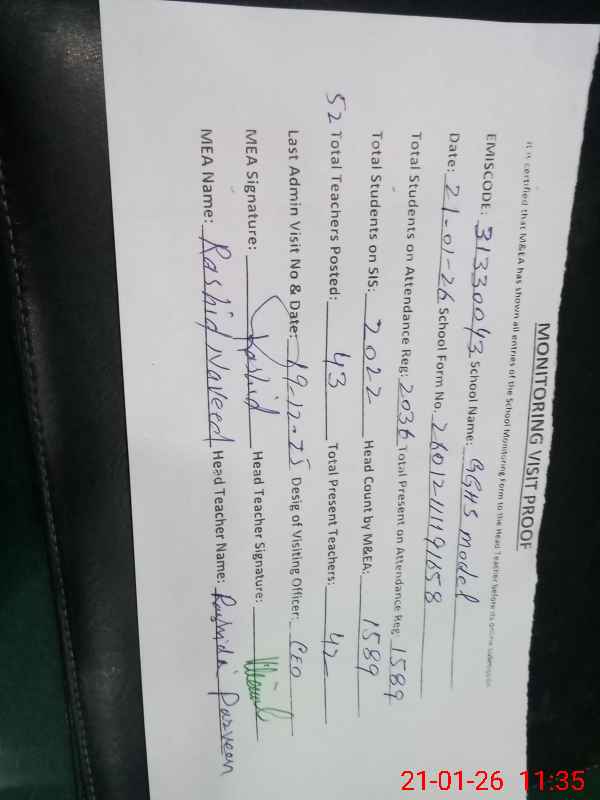 MONITORING VISIT PROOF
It is certified that M&EA has shown all entries of the School Monitoring Form to the Head Teacher before its online submission
EMISCODE: 31330043 School Name: GGHS model
Date: 21-01-26 School Form No. 26012111191658
Total Students on Attendance Reg: 2036 Total Present on Attendance Reg: 1589
Total Students on SIS: 2022 Head Count by M&EA: 1589
52 Total Teachers Posted: 43 Total Present Teachers: 42
Last Admin Visit No & Date: 19-12-25 Desig of Visiting Officer: CEO
MEA Signature: Rashid Head Teacher Signature:
MEA Name: Rashid Naveed Head Teacher Name: Rashida Parveen
21-01-26 11:35